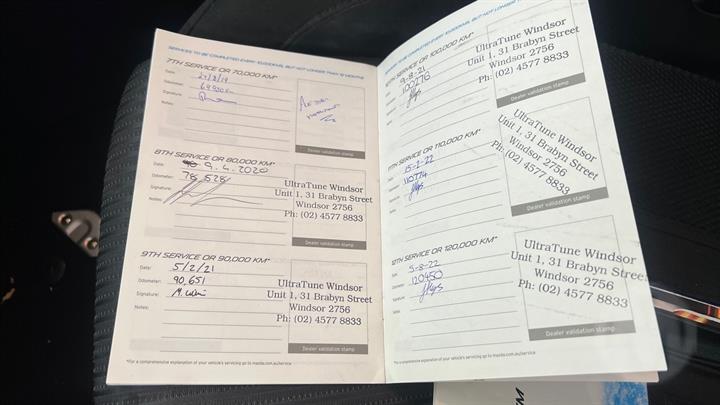 SERVICES TO BE COMPLETED EVERY 10,000KM, BUT NOT LONGER THAN 12 MONTHS
7TH SERVICE OR 70,000 KM*
Date:
Odometer:
Signature:
Notes:
Dealer validation stamp
8TH SERVICE OR 80,000 KM*
Date: 9.4.2020
Odometer: 78,528
Signature:
Notes:
UltraTune Windsor
Unit 1, 31 Brabyn Street
Windsor 2756
Ph: (02) 4577 8833
Dealer validation stamp
9TH SERVICE OR 90,000 KM*
Date: 5/2/21
Odometer: 90,651
Signature:
Notes:
UltraTune Windsor
Unit 1, 31 Brabyn Street
Windsor 2756
Ph: (02) 4577 8833
Dealer validation stamp
*For a comprehensive explanation of your vehicle's servicing go to mazda.com.au/service
10TH SERVICE OR 100,000 KM*
9-8-21
100276
UltraTune Windsor
Unit 1, 31 Brabyn Street
Windsor 2756
Ph: (02) 4577 8833
Dealer validation stamp
11TH SERVICE OR 110,000 KM*
15-2-22
110774
UltraTune Windsor
Unit 1, 31 Brabyn Street
Windsor 2756
Ph: (02) 4577 8833
Dealer validation stamp
12TH SERVICE OR 120,000 KM*
5-8-22
120450
UltraTune Windsor
Unit 1, 31 Brabyn Street
Windsor 2756
Ph: (02) 4577 8833
Dealer validation stamp
*For a comprehensive explanation of your vehicle's servicing go to mazda.com.au/service